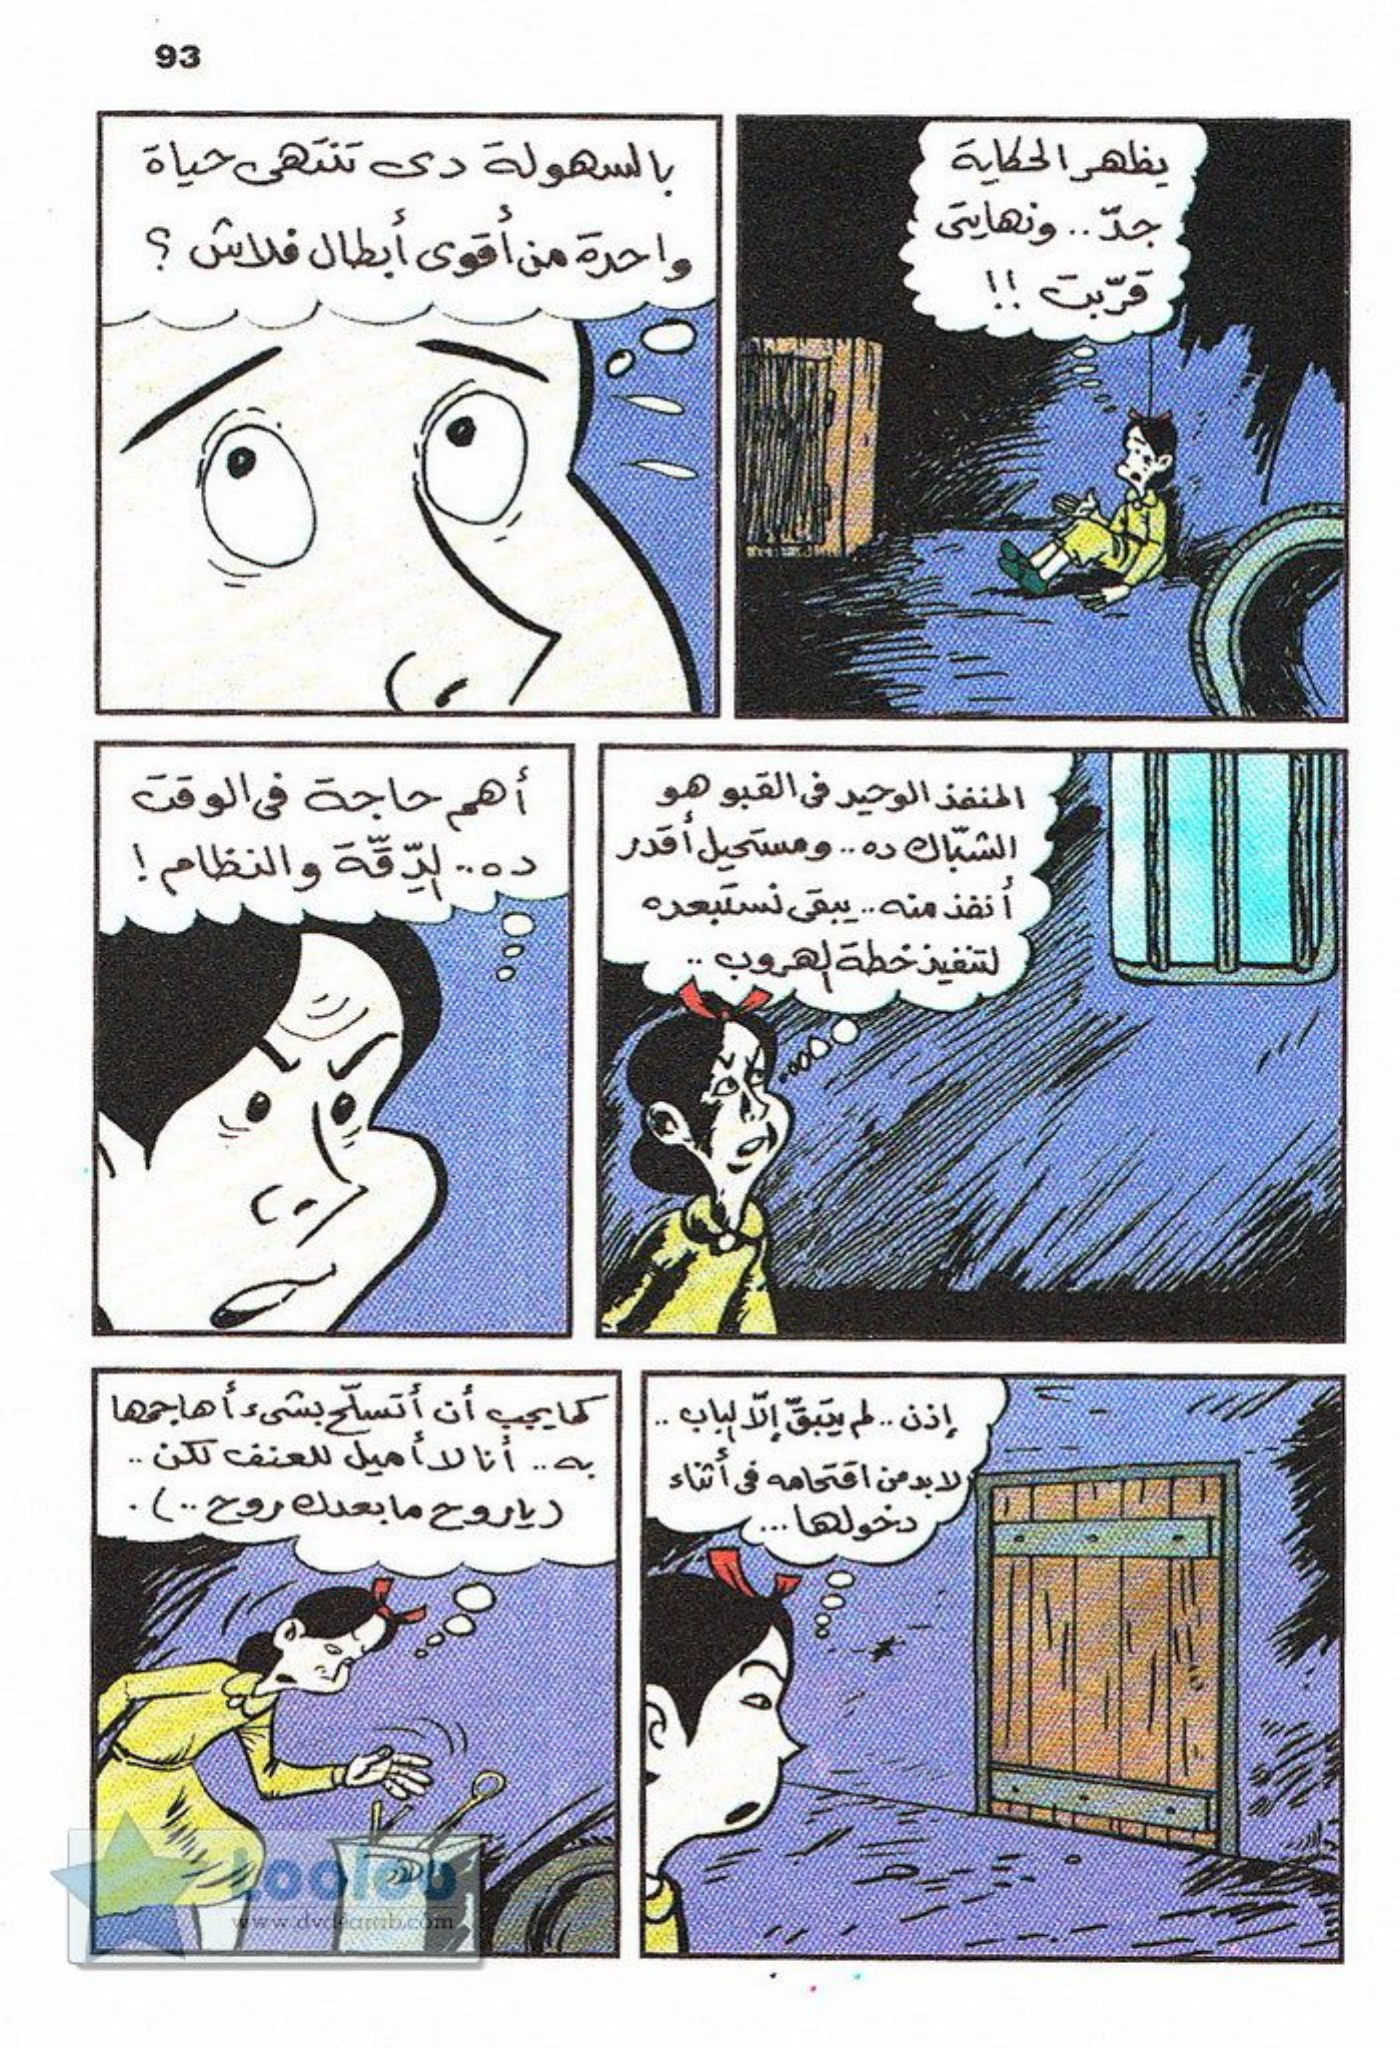 93
يظهر الحكاية
جدّ.. ونهايتى
قرّبت !!
بالسهولة دى تنتهى حياة
واحدة من أقوى أبطال فلاش ؟
المنفذ الوحيد فى القبو هو
الشبّاك ده.. ومستحيل أقدر
أنفذ منه.. يبقى نستبعده
لتنفيذ خطة الهروب ..
أهم حاجة فى الوقت
ده.. الدِّقَّة والنظام !
إذن .. لم يتبقَّ إلّا الباب ..
لابد من اقتحامه فى أثناء
دخولها...
كما يجب أن أتسلّح بشىء أهاجمها
به.. أنا لا أميل للعنف لكن ..
(ياروح ما بعدك روح ..) .
Looloo
www.dvd4arab.com